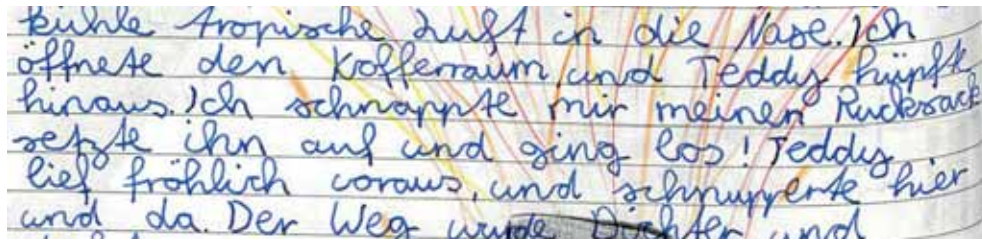 kühle tropische Luft in die Nase. Ich
öffnete den Kofferraum und Teddy hüpft
hinaus. Ich schnappte mir meinen Rucksack
setzte ihn auf und ging los! Teddy
lief fröhlich voraus, und schnupperte hier
und da. Der Weg wurde Dichter und